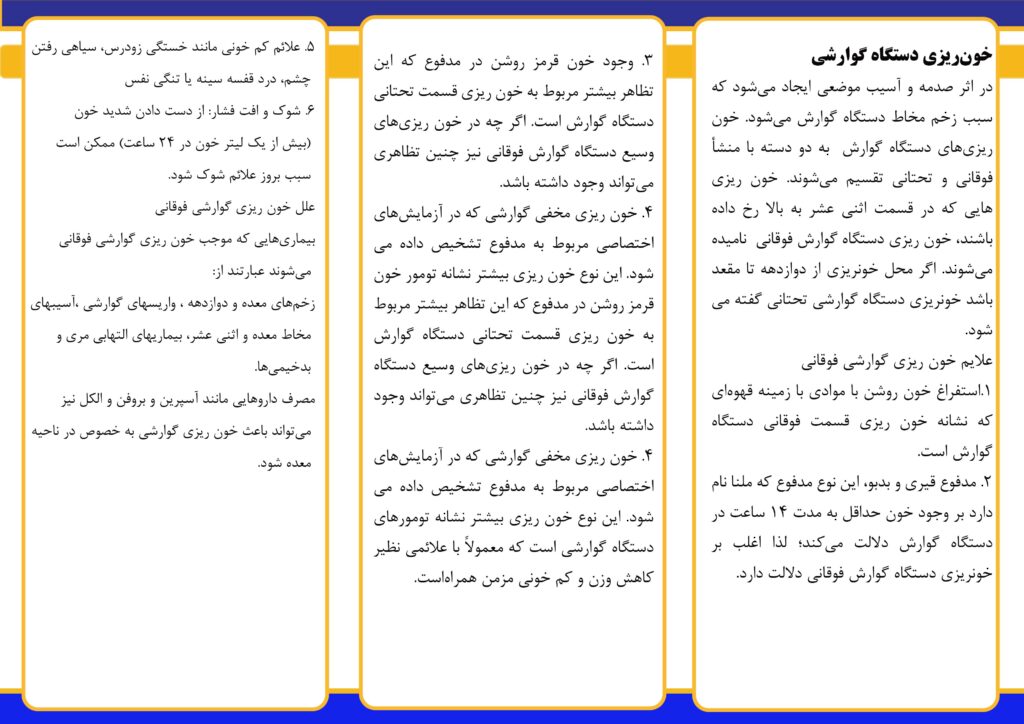 خون‌ریزی دستگاه گوارشی
در اثر صدمه و آسیب موضعی ایجاد می‌شود که
سبب زخم مخاط دستگاه گوارش می‌شود. خون
ریزی‌های دستگاه گوارش به دو دسته با منشأ
فوقانی و تحتانی تقسیم می‌شوند. خون ریزی
هایی که در قسمت اثنی عشر به بالا رخ داده
باشند، خون ریزی دستگاه گوارش فوقانی نامیده
می‌شوند. اگر محل خونریزی از دوازدهه تا مقعد
باشد خونریزی دستگاه گوارشی تحتانی گفته می
شود.
علایم خون ریزی گوارشی فوقانی
۱.استفراغ خون روشن با موادی با زمینه قهوه‌ای
که نشانه خون ریزی قسمت فوقانی دستگاه
گوارش است.
۲. مدفوع قیری و بدبو، این نوع مدفوع که ملنا نام
دارد بر وجود خون حداقل به مدت ۱۴ ساعت در
دستگاه گوارش دلالت می‌کند؛ لذا اغلب بر
خونریزی دستگاه گوارش فوقانی دلالت دارد.
۳. وجود خون قرمز روشن در مدفوع که این
تظاهر بیشتر مربوط به خون ریزی قسمت تحتانی
دستگاه گوارش است. اگر چه در خون ریزی‌های
وسیع دستگاه گوارش فوقانی نیز چنین تظاهری
می‌تواند وجود داشته باشد.
۴. خون ریزی مخفی گوارشی که در آزمایش‌های
اختصاصی مربوط به مدفوع تشخیص داده می
شود. این نوع خون ریزی بیشتر نشانه تومور خون
قرمز روشن در مدفوع که این تظاهر بیشتر مربوط
به خون ریزی قسمت تحتانی دستگاه گوارش
است. اگر چه در خون ریزی‌های وسیع دستگاه
گوارش فوقانی نیز چنین تظاهری می‌تواند وجود
داشته باشد.
۴. خون ریزی مخفی گوارشی که در آزمایش‌های
اختصاصی مربوط به مدفوع تشخیص داده می
شود. این نوع خون ریزی بیشتر نشانه تومورهای
دستگاه گوارشی است که معمولاً با علائمی نظیر
کاهش وزن و کم خونی مزمن همراه‌است.
۵. علائم کم خونی مانند خستگی زودرس، سیاهی رفتن
چشم، درد قفسه سینه یا تنگی نفس
۶. شوک و افت فشار: از دست دادن شدید خون
(بیش از یک لیتر خون در ۲۴ ساعت) ممکن است
سبب بروز علائم شوک شود.
علل خون ریزی گوارشی فوقانی
بیماری‌هایی که موجب خون ریزی گوارشی فوقانی
می‌شوند عبارتند از:
زخم‌های معده و دوازدهه ، واریسهای گوارشی ،آسیبهای
مخاط معده و اثنی عشر، بیماریهای التهابی مری و
بدخیمی‌ها.
مصرف داروهایی مانند آسپرین و بروفن و الکل نیز
می‌تواند باعث خون ریزی گوارشی به خصوص در ناحیه
معده شود.